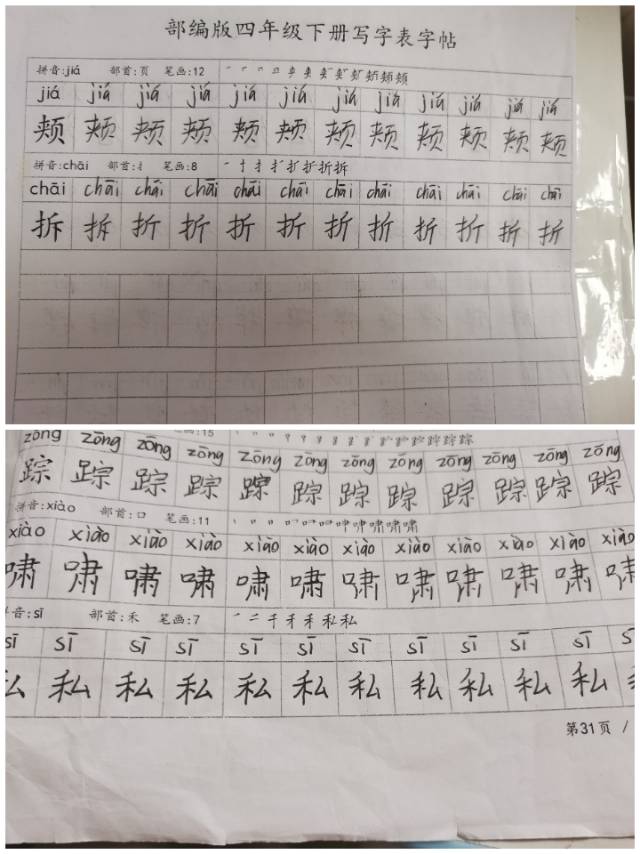 部编版四年级下册写字表字帖
拼音:jiá 部首:页 笔画:12
jiá jiá jiá jiá jiá jiá jiá jiá jiá jiá jiá jiá
颊 颊 颊 颊 颊 颊 颊 颊 颊 颊 颊 颊
拼音:chāi 部首:扌 笔画:8
chāi chāi chāi chāi chāi chāi chāi chāi chāi chāi chāi chāi
拆 拆 折 折 折 折 折 折 折 折 折 折
笔画:15
zōng zōng zōng zōng zōng zōng zōng zōng zōng zōng zōng zōng
踪 踪 踪 踪 踪 踪 踪 踪 踪 踪 踪 踪
拼音:xiào 部首:口 笔画:11
xiào xiào xiào xiào xiào xiào xiào xiào xiào xiào xiào xiào
啸 啸 啸 啸 啸 啸 啸 啸 啸 啸 啸 啸
音:sī 部首:禾 笔画:7 一 二 千 禾 禾 私私
sī sī sī sī sī sī sī sī sī sī sī
私 私 私 私 私 私 私 私 私 私 私
第31页 /